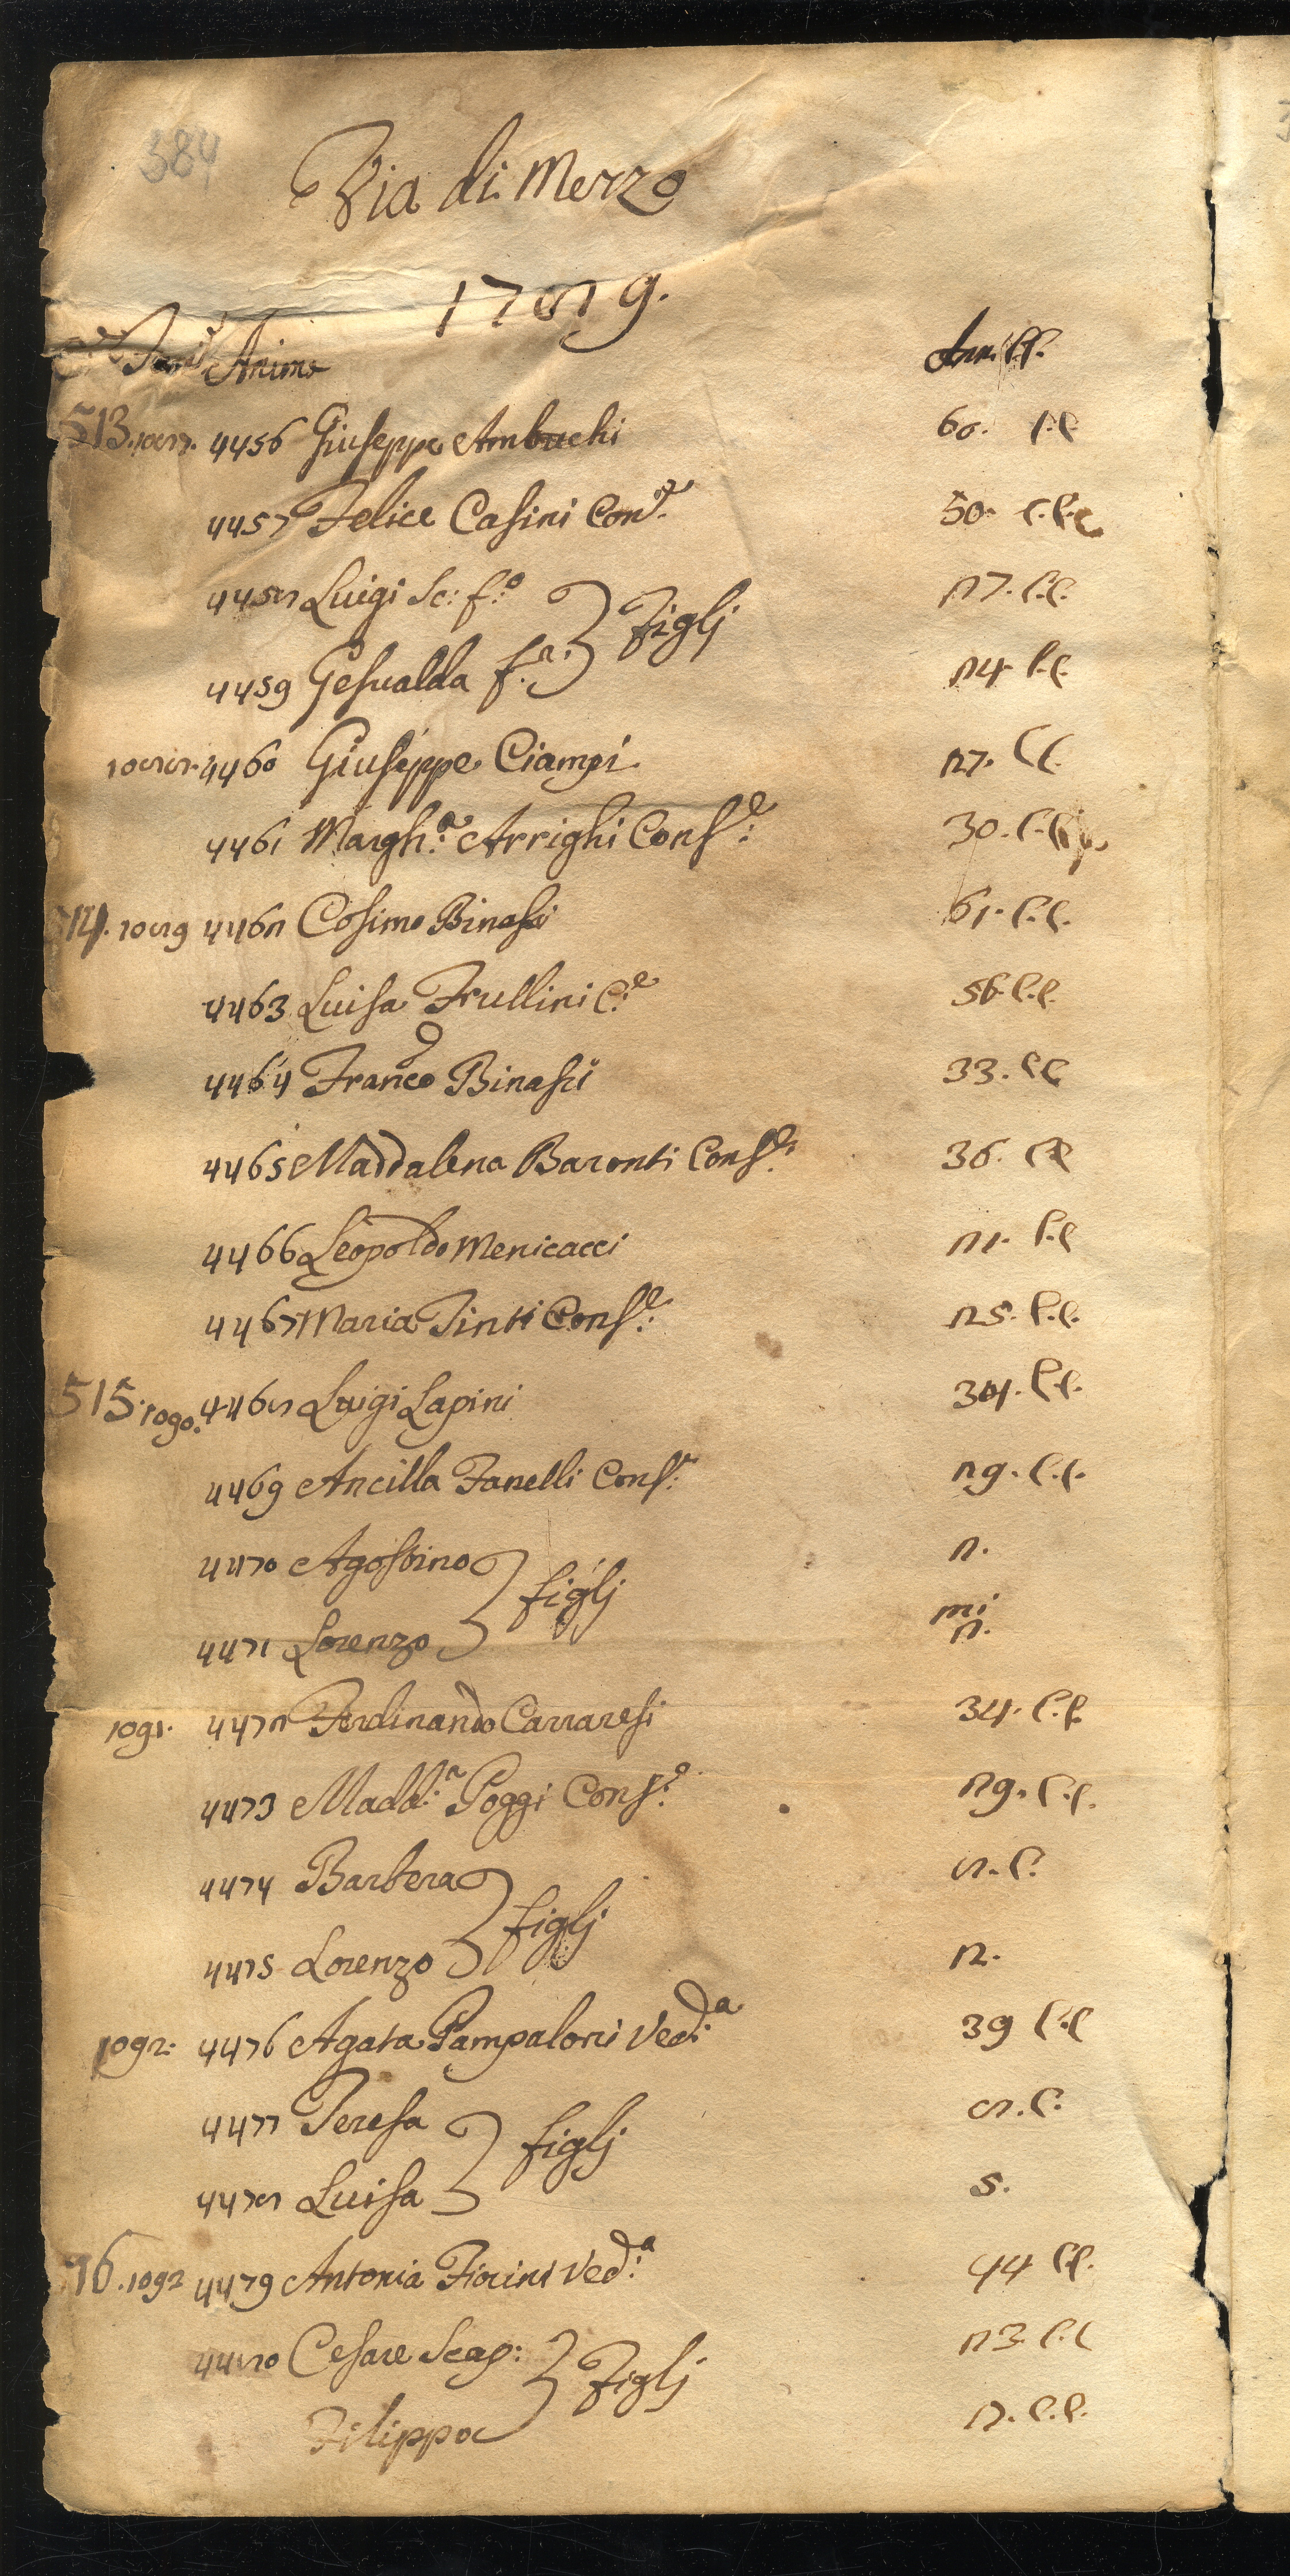 384
Via di Mezzo
1789.
Fami Anime Ann. C.C.
513. 1087. 4456 Giuseppe Ambuchi 60. C.C
4457 Felice Casini Con.e 50. C.C.C
4458 Luigi Sc: f:o 27. C.C.
4459 Gesualda f.a: } Figlj 24. C.C.
1088. 4460 Giuseppe Ciampi 27. C.C.
4461 Margh:a Arrighi Cons:e 30. C.C.
514. 1089 4462 Cosimo Binassi 61. C.C.
4463 Luisa Frullini C:e 56. C.C.
4464 Franco Binassi 33. C.C
4465 Maddalena Baronti Cons:e 36. C.C
4466 Leopoldo Menicacci 21. C.C
4467 Maria Tinti Cons:e 25. C.C.
515. 1090. 4468 Luigi Lapini 34. C.C.
4469 Ancilla Fanelli Cons:e 29. C.C.
4470 Agostino 2.
4471 Lorenzo } figlj mi 2.
1091. 4472 Ferdinando Carraresi 34. C.C.
4473 Madd:a Poggi Cons:e 29. C.C.
4474 Barbera 8. C.
4475 Lorenzo } figlj 2.
1092: 4476 Agata Pampaloni Ved:a 39 C.C
4477 Teresa 8. C.
4478 Luisa } figlj 5.
16. 1092 4479 Antonia Fiorini Ved:a 44 C.C.
4480 Cesare Scap: 23. C.C
Filippo } Figlj C.C.